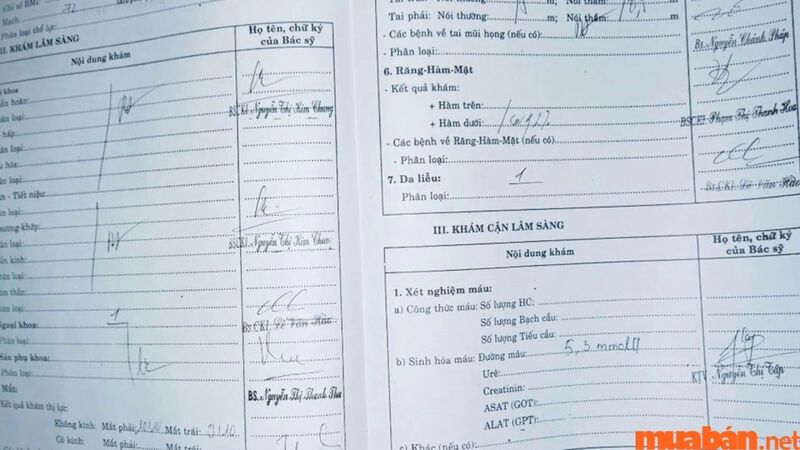 Chỉ số BMI:
Mạch: 72
Phân loại thể lực:
II. KHÁM LÂM SÀNG
Nội dung khám
Họ tên, chữ ký
của Bác sỹ
khoa
ần hoàn:
loại:
BSCKI. Nguyễn Thị Kim Chung
hấp:
loại:
hóa:
loại:
n - Tiết niệu:
loại:
ương-khớp:
loại:
BSCKI. Nguyễn Thị Kim Chung
kinh:
loại:
thần:
loại:
Ngoại khoa: 1
BS.CKI. Lê Văn
Phân loại:
Sản phụ khoa:
Phân loại:
BS. Nguyễn Thị Thanh Thu
Mắt:
Kết quả khám thị lực:
Không kính: Mắt phải: 10/10 Mắt trái: 9/10
Có kính: Mắt phải: Mắt trái:
Tai phải: Nói thường: m; Nói thầm m
- Các bệnh về tai mũi họng (nếu có):
- Phân loại:
Bs. Nguyễn Chánh Pháp
6. Răng-Hàm-Mặt
- Kết quả khám:
+ Hàm trên:
+ Hàm dưới:
BSCKI. Phạm Thị Thanh Hoa
- Các bệnh về Răng-Hàm-Mặt (nếu có)
- Phân loại:
7. Da liễu: 1
Phân loại:
Bs.CKI. Lê Văn
III. KHÁM CẬN LÂM SÀNG
Nội dung khám
Họ tên, chữ ký
của Bác sỹ
1. Xét nghiệm máu:
a) Công thức máu: Số lượng HC:
Số lượng Bạch cầu:
Số lượng Tiểu cầu:
b) Sinh hóa máu: Đường máu: 5,3 mmol/l
Urê:
KTV Nguyễn Thị Tập
Creatinin:
ASAT (GOT):
ALAT (GPT):
c) Khác (nếu có):
muabán.net